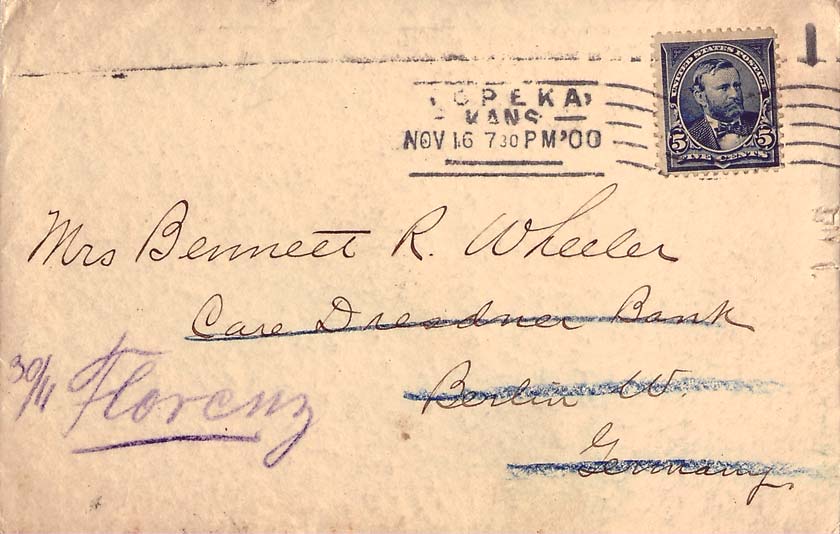 UNITED STATES POSTAGE
5 5
FIVE CENTS
TOPEKA,
KANS
NOV 16 7 30 PM '00
Mrs Bennett R. Wheeler
Care Dresdner Bank
Berlin W.
Germany.
30/11 Florenz